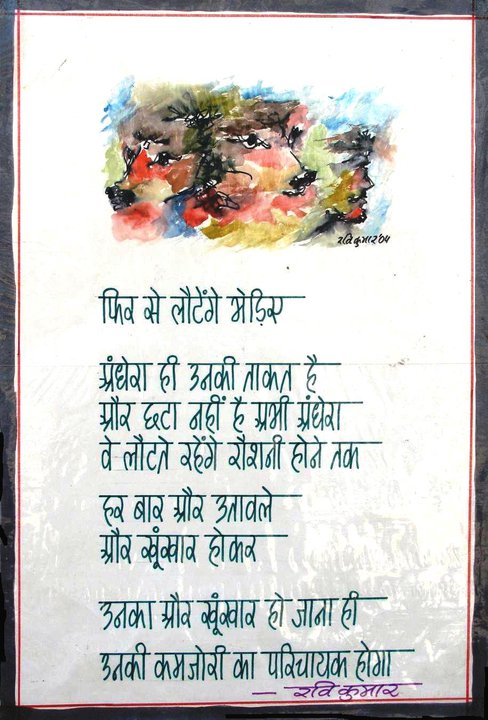 रवि कुमार'04
फिर से लौटेंगे भेड़िए
अंधेरा ही उनकी ताकत है
और छटा नहीं है अभी अंधेरा
वे लौटते रहेंगे रौशनी होने तक
हर बार और उतावले
और खूंख़ार होकर
उनका और खूंख़ार हो जाना ही
उनकी कमजोरी का परिचायक होगा
– रवि कुमार